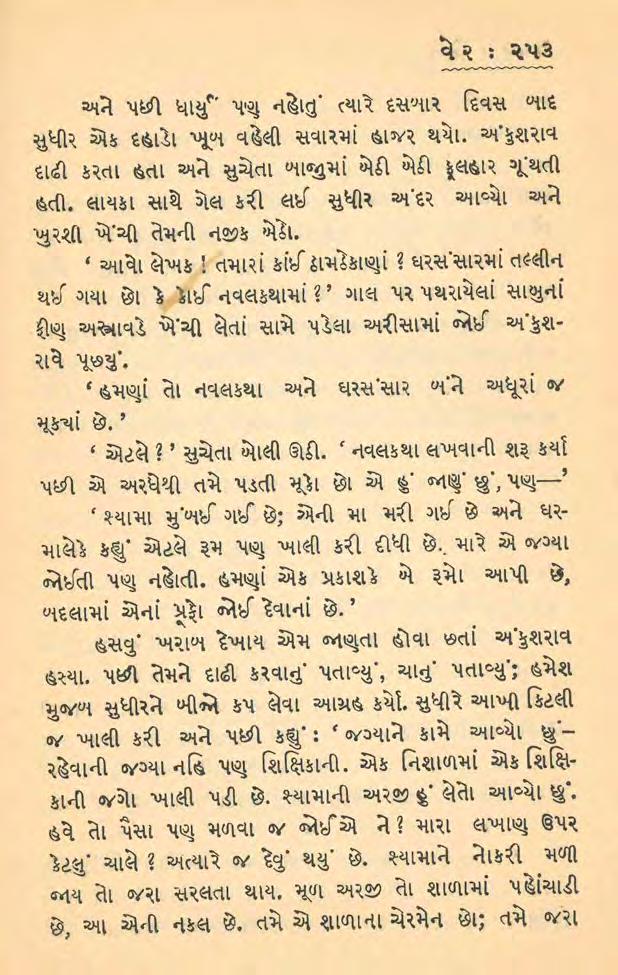 વેર : ૨૫૩
અને પછી ધાર્યું પણ નહોતું ત્યારે દસબાર દિવસ બાદ
સુધીર એક દહાડો ખૂબ વહેલી સવારમાં હાજર થયો. અંકુશરાવ
દાઢી કરતા હતા અને સુચેતા બાજુમાં બેઠી બેઠી ફૂલહાર ગૂંથતી
હતી. લાયકા સાથે ગેલ કરી લઈ સુધીર અંદર આવ્યો અને
ખુરશી ખેંચી તેમની નજીક બેઠો.
‘ આવો લેખક ! તમારાં કાંઈ ઠામઠેકાણાં ? ઘરસંસારમાં તલ્લીન
થઈ ગયા છો કે કોઈ નવલકથામાં ?’ ગાલ પર પથરાયેલાં સાબુનાં
ફીણ અસ્ત્રાવડે ખેંચી લેતાં સામે પડેલા અરીસામાં જોઈ અંકુશ-
રાવે પૂછ્યું.
‘ હમણાં તો નવલકથા અને ઘરસંસાર બંને અધૂરાં જ
મૂક્યાં છે.’
‘ એટલે ?’ સુચેતા બોલી ઊઠી. ‘ નવલકથા લખવાની શરૂ કર્યા
પછી એ અરધેથી તમે પડતી મૂકો છો એ હું જાણું છું, પણ—’
‘ શ્યામા મુંબઈ ગઈ છે; એની મા મરી ગઈ છે અને ઘર-
માલેકે કહ્યું એટલે રૂમ પણ ખાલી કરી દીધી છે. મારે એ જગ્યા
જોઈતી પણ નહોતી. હમણાં એક પ્રકાશકે બે રૂમો આપી છે,
બદલામાં એનાં પ્રૂફો જોઈ દેવાનાં છે.’
હસવું ખરાબ દેખાય એમ જાણતા હોવા છતાં અંકુશરાવ
હસ્યા. પછી તેમને દાઢી કરવાનું પતાવ્યું, ચાનું પતાવ્યું; હમેશ
મુજબ સુધીરને બીજો કપ લેવા આગ્રહ કર્યો. સુધીરે આખી કિટલી
જ ખાલી કરી અને પછી કહ્યું : ‘ જગ્યાને કામે આવ્યો છું–
રહેવાની જગ્યા નહિ પણ શિક્ષિકાની. એક નિશાળમાં એક શિક્ષિ-
કાની જગો ખાલી પડી છે. શ્યામાની અરજી હું લેતો આવ્યો છું.
હવે તો પૈસા પણ મળવા જ જોઈએ ને ? મારા લખાણ ઉપર
કેટલું ચાલે ? અત્યારે જ દેવું થયું છે. શ્યામાને નોકરી મળી
જાય તો જરા સરલતા થાય. મૂળ અરજી તો શાળામાં પહોંચાડી
છે, આ એની નકલ છે. તમે એ શાળાના ચેરમેન છો; તમે જરા